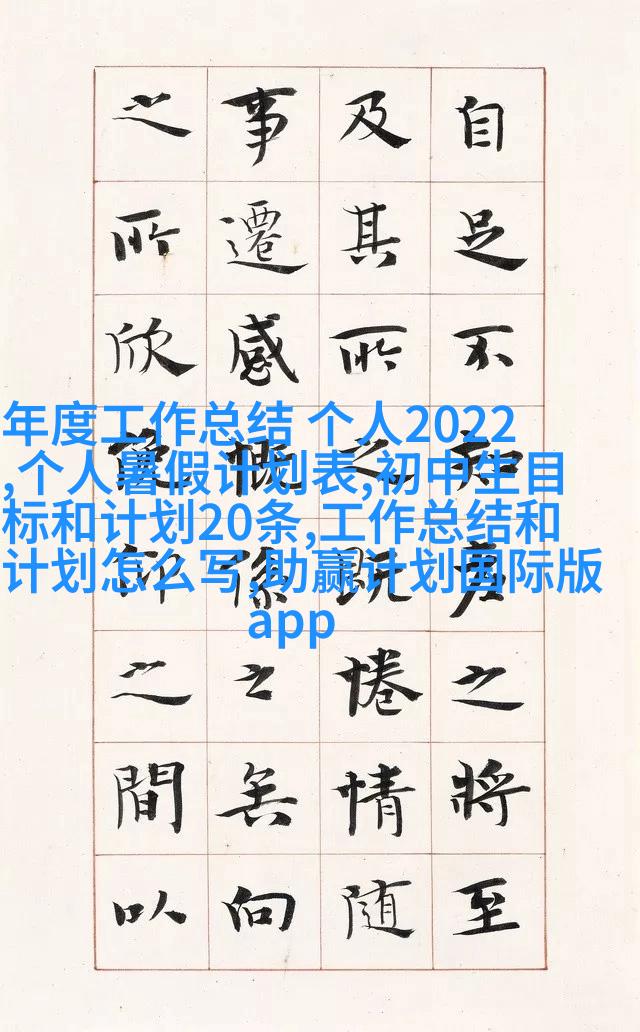 自足不知之將至
及其所之既惓情隨
事遷感慨係之矣向
之所欣俛仰之間以
年度工作总结 个人2022
,个人暑假计划表,初中生目
标和计划20条,工作总结和
计划怎么写,助赢计划国际版
app